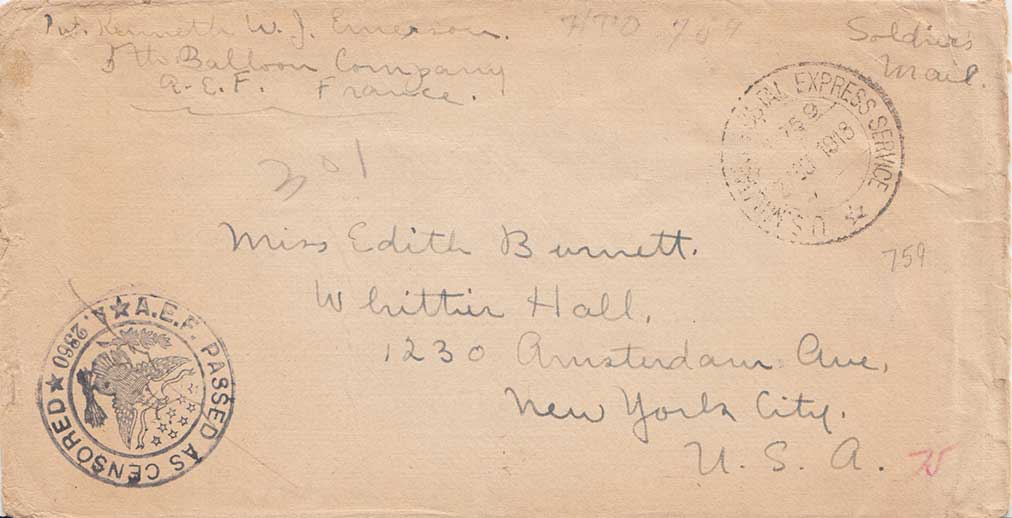 Pvt. Kenneth W. J. Emerson.
5th Balloon Company
A.E.F. France.
Soldier's
Mail.
U.S. POSTAL EXPRESS SERVICE
759
1918
201
Miss Edith Burnett.
Whittier Hall,
1230 Amsterdam Ave,
New York City.
U. S. A.
759
A.E.F. PASSED AS CENSORED
A. 2860